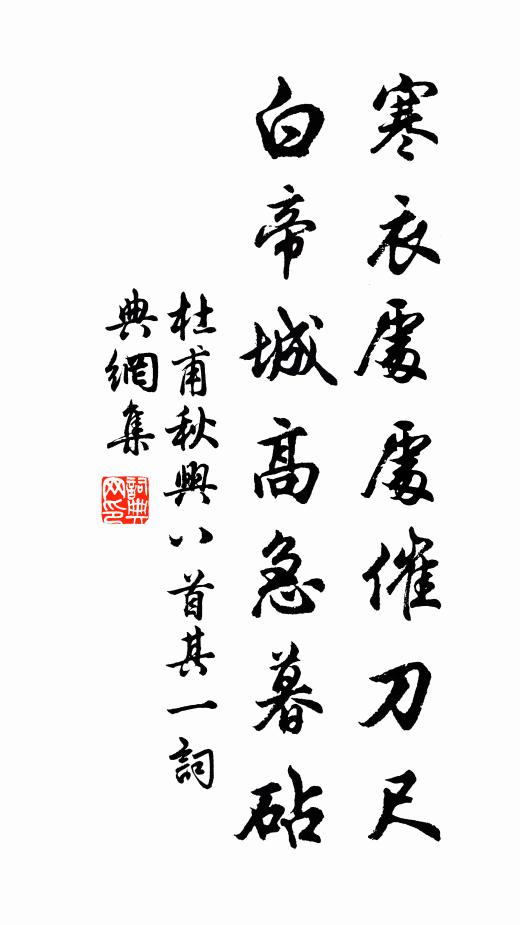 寒衣處處催刀尺
白帝城高急暮砧
杜甫秋興八首其一詞
典網集
詞典
网印